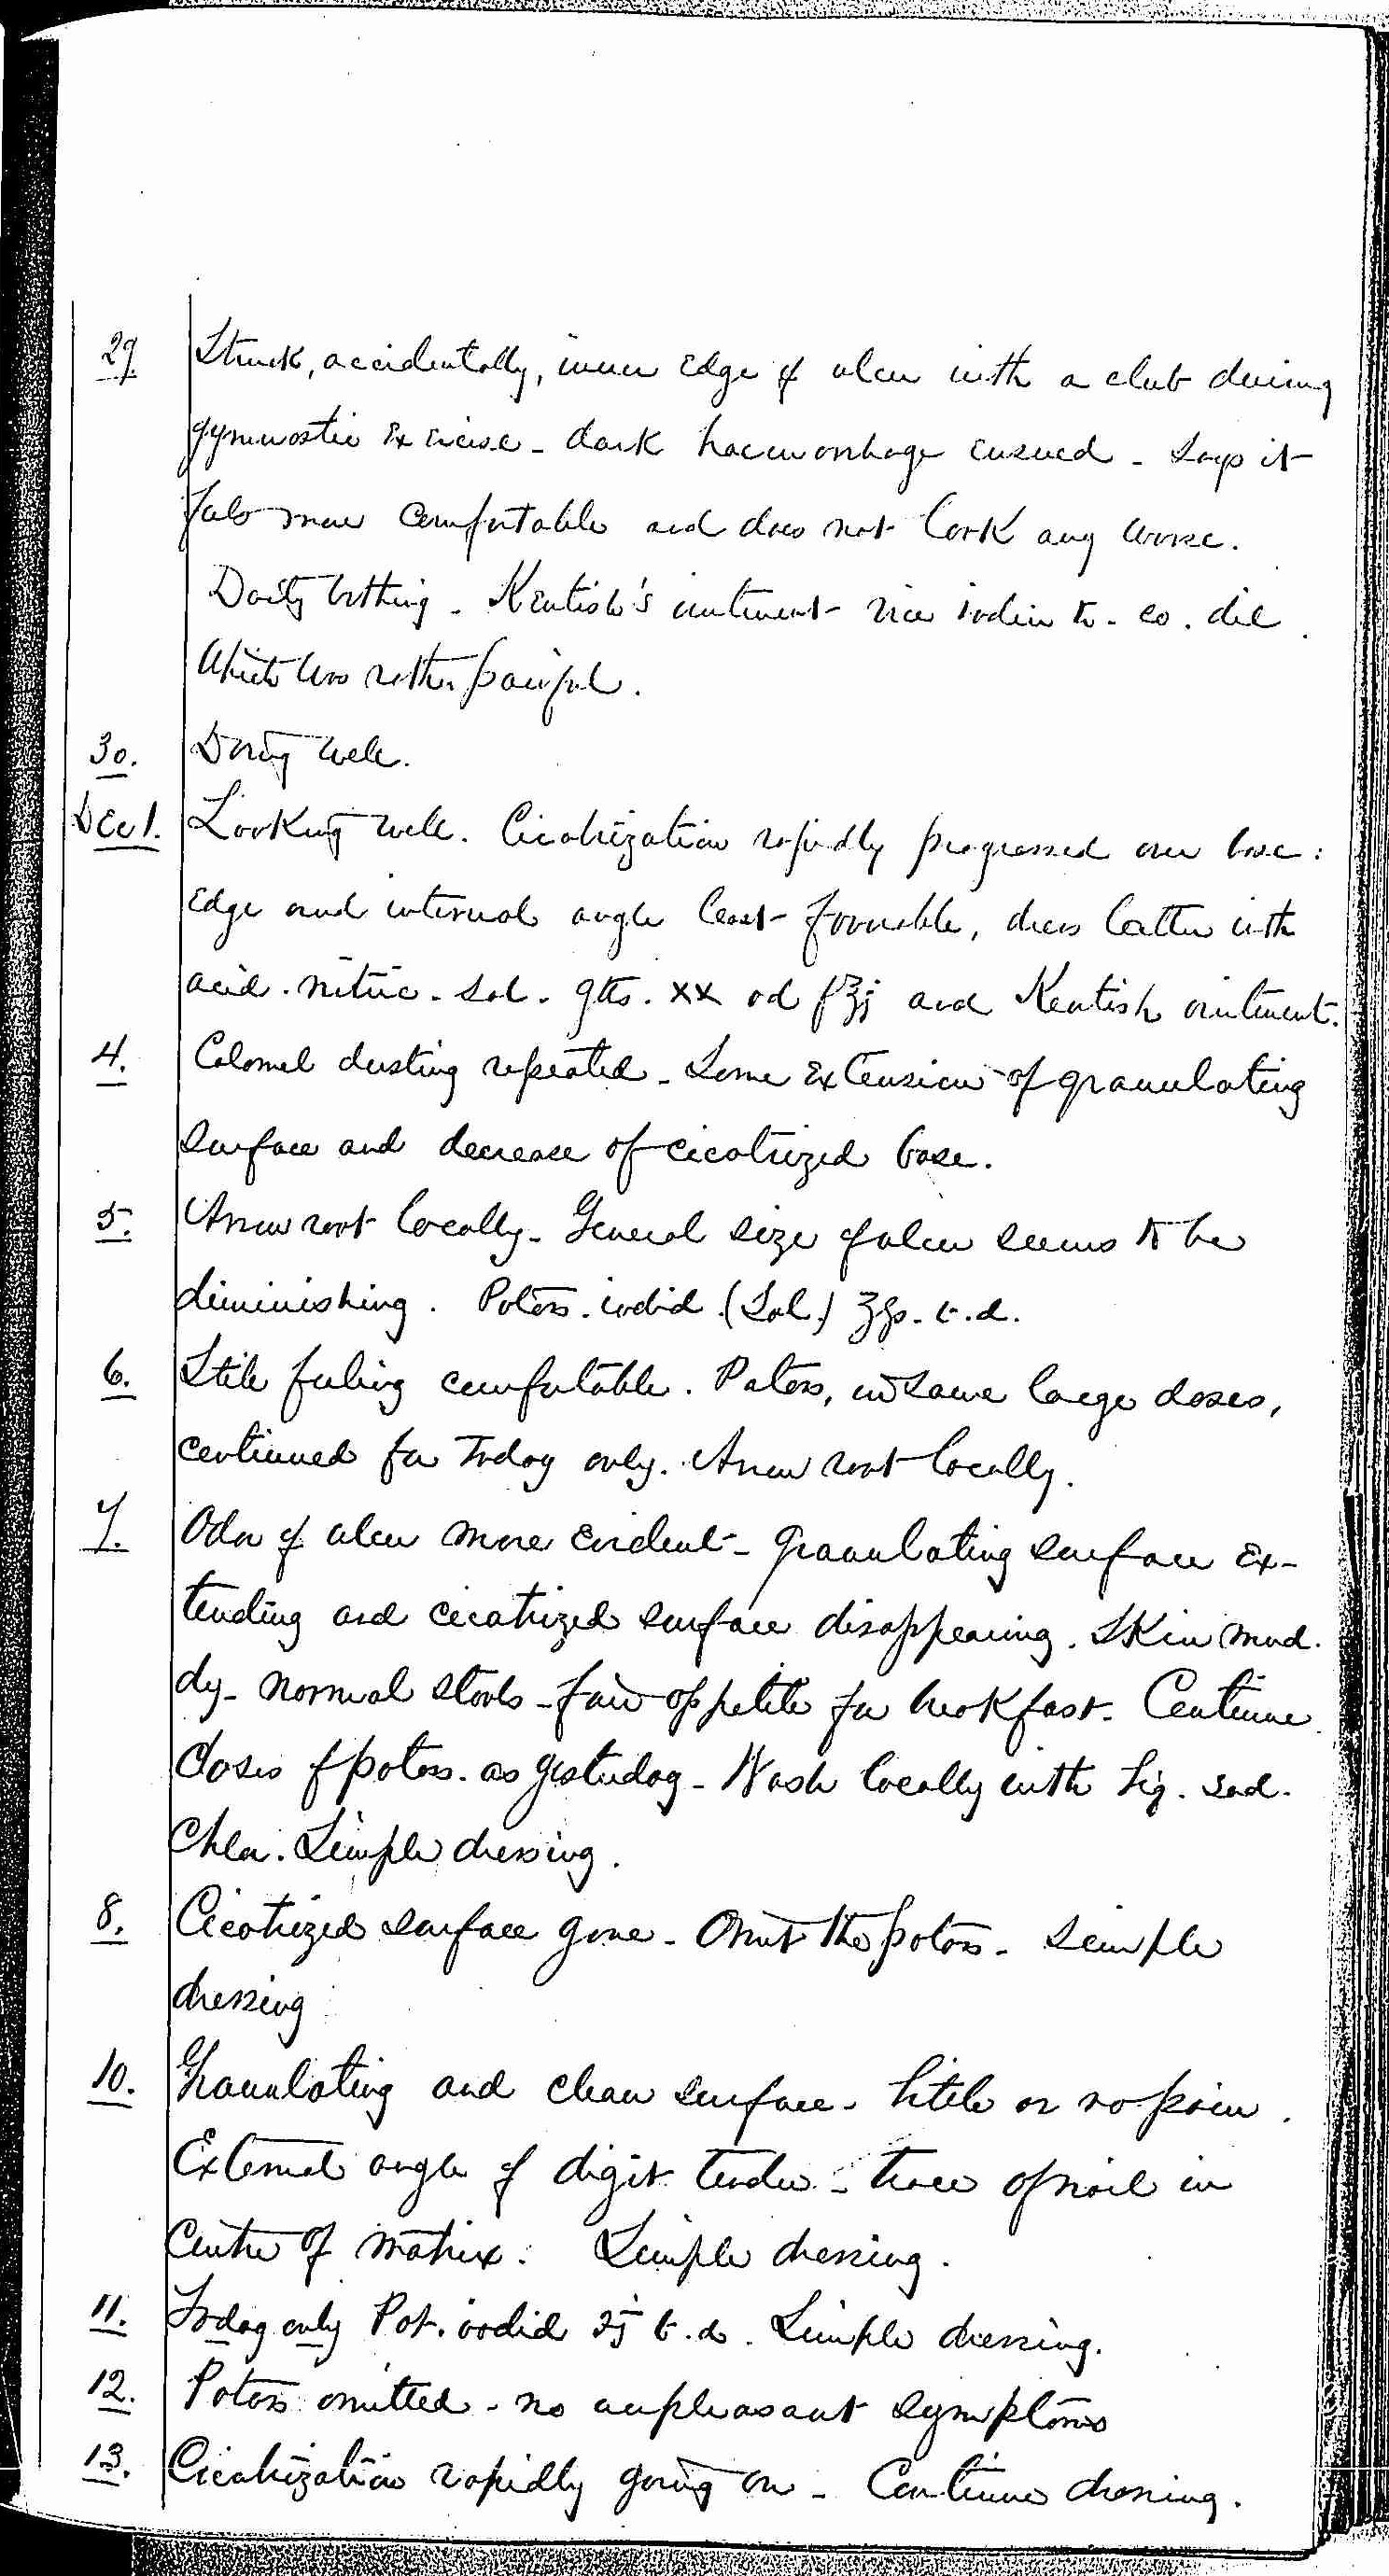 29. Struck, accidentally, inner edge of ulcer with a club during
gymnastic exercise - dark haemorrhage ensued - says it
feels more comfortable and does not look any worse.
Daily bathing - Kentish's ointment vice iodin tr. co. dil.
which was rather painful.
30. Doing well.
Dec 1. Looking well. Cicatrization rapidly progressed over base:
edge and internal angle least favorable, dress latter with
acid. nitric. sol. gtts. xx ad f℥j and Kentish ointment.
4. Calomel dusting repeated - Some extension of granulating
surface and decrease of cicatrized base.
5. Arrow root locally - General size of ulcer seems to be
diminishing. Potass. iodid. (Sol.) ℥ss. t.d.
6. Still feeling comfortable. Potass, in same large doses,
continued for today only. Arrow root locally.
7. Odor of ulcer more evident - granulating surface ex-
tending and cicatrized surface disappearing. Skin mud-
dy - normal stools - fair appetite for breakfast. Continue
doses of potass. as yesterday - Wash locally with Liq. sod.
Chlor. Simple dressing.
8. Cicatrized surface gone - Omit the potass - simple
dressing
10. Granulating and clean surface - little or no pain.
External angle of digit tender - trace of nail in
centre of matrix. Simple dressing.
11. Today only Pot. iodid ʒj t.d. Simple dressing.
12. Potass omitted - no unpleasant symptoms
13. Cicatrization rapidly going on - Continue dressing.